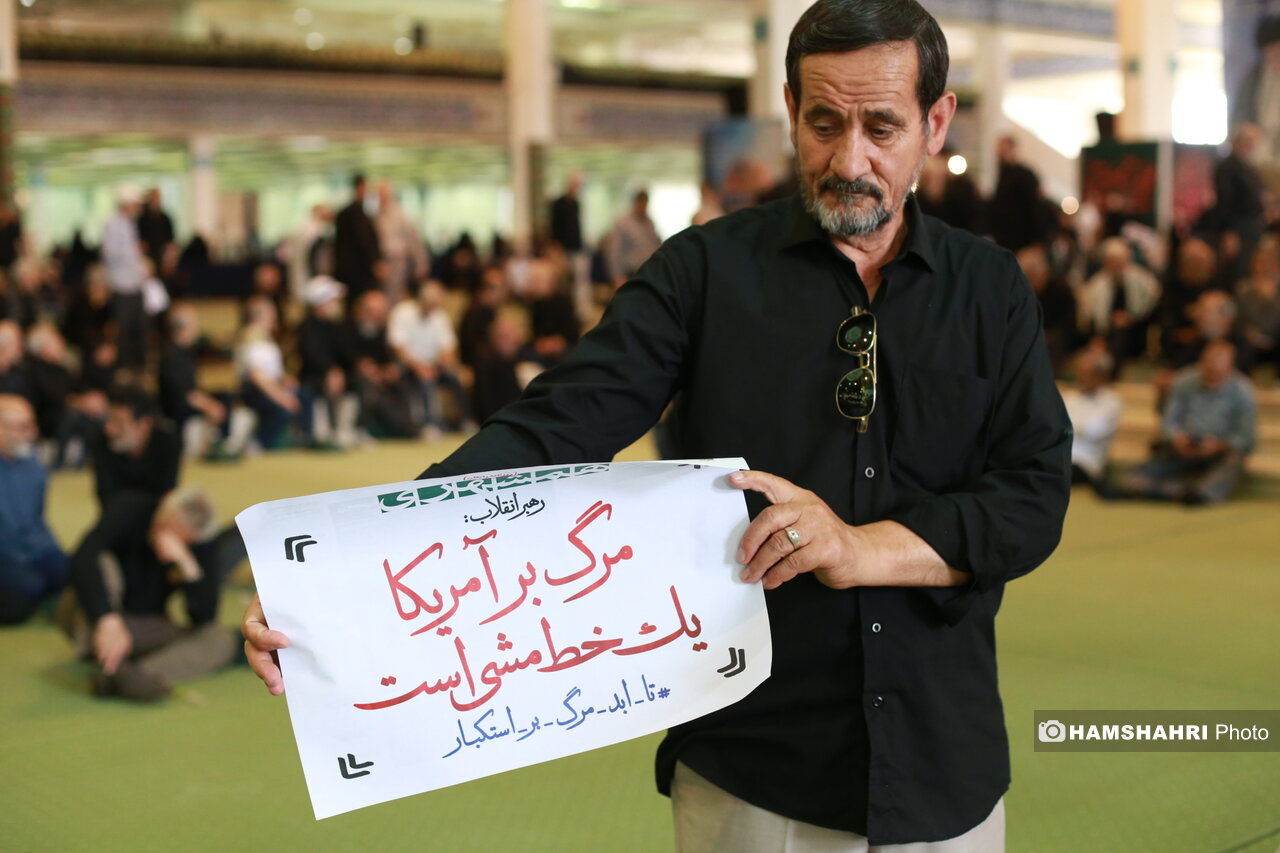 رهبر انقلاب:
مرگ بر آمریکا
یک خط مشی است
#تا_ابد_مرگ_بر_استکبار
HAMSHAHRI Photo